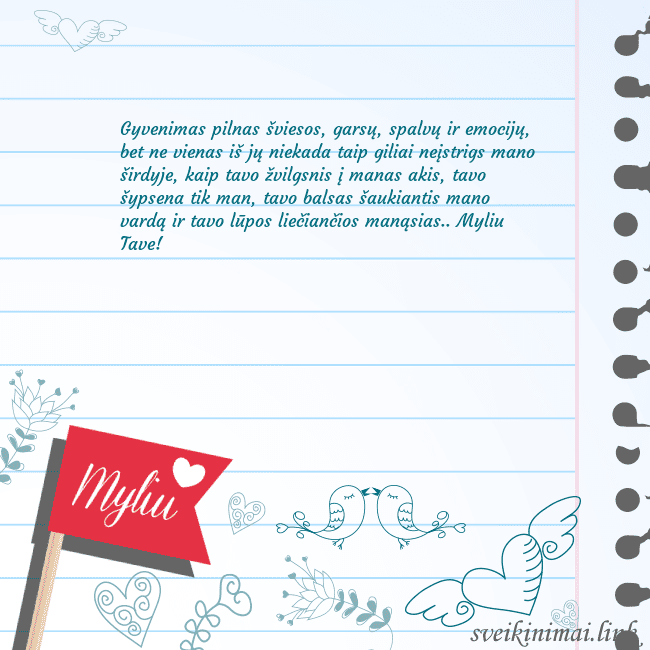 Gyvenimas pilnas šviesos, garsų, spalvų ir emocijų,
bet ne vienas iš jų niekada taip giliai neįstrigs mano
širdyje, kaip tavo žvilgsnis į manas akis, tavo
šypsena tik man, tavo balsas šaukiantis mano
vardą ir tavo lūpos liečiančios manąsias.. Myliu
Tave!
Myliu
sveikinimai.link